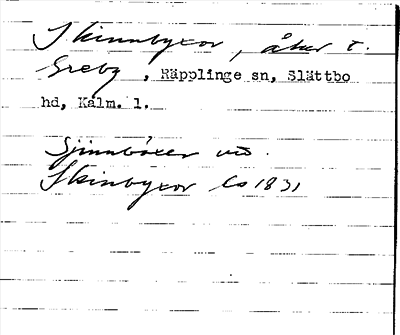 Skinnbyxor, åker t.
Greby, Räpplinge sn, Slättbo
hd, Kalm. l.
Sjinnbåxer uö.
Skinbyxor Ls 1831